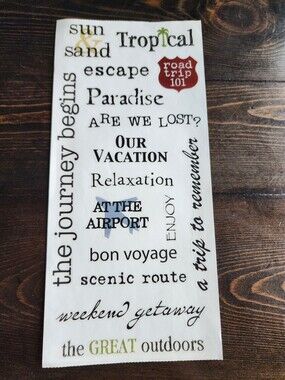 sun
&
sand
Tropical
escape
road
trip
101
Paradise
ARE WE LOST?
the journey begins
OUR
VACATION
Relaxation
AT THE
AIRPORT
ENJOY
a trip to remember
bon voyage
scenic route
weekend getaway
the GREAT outdoors